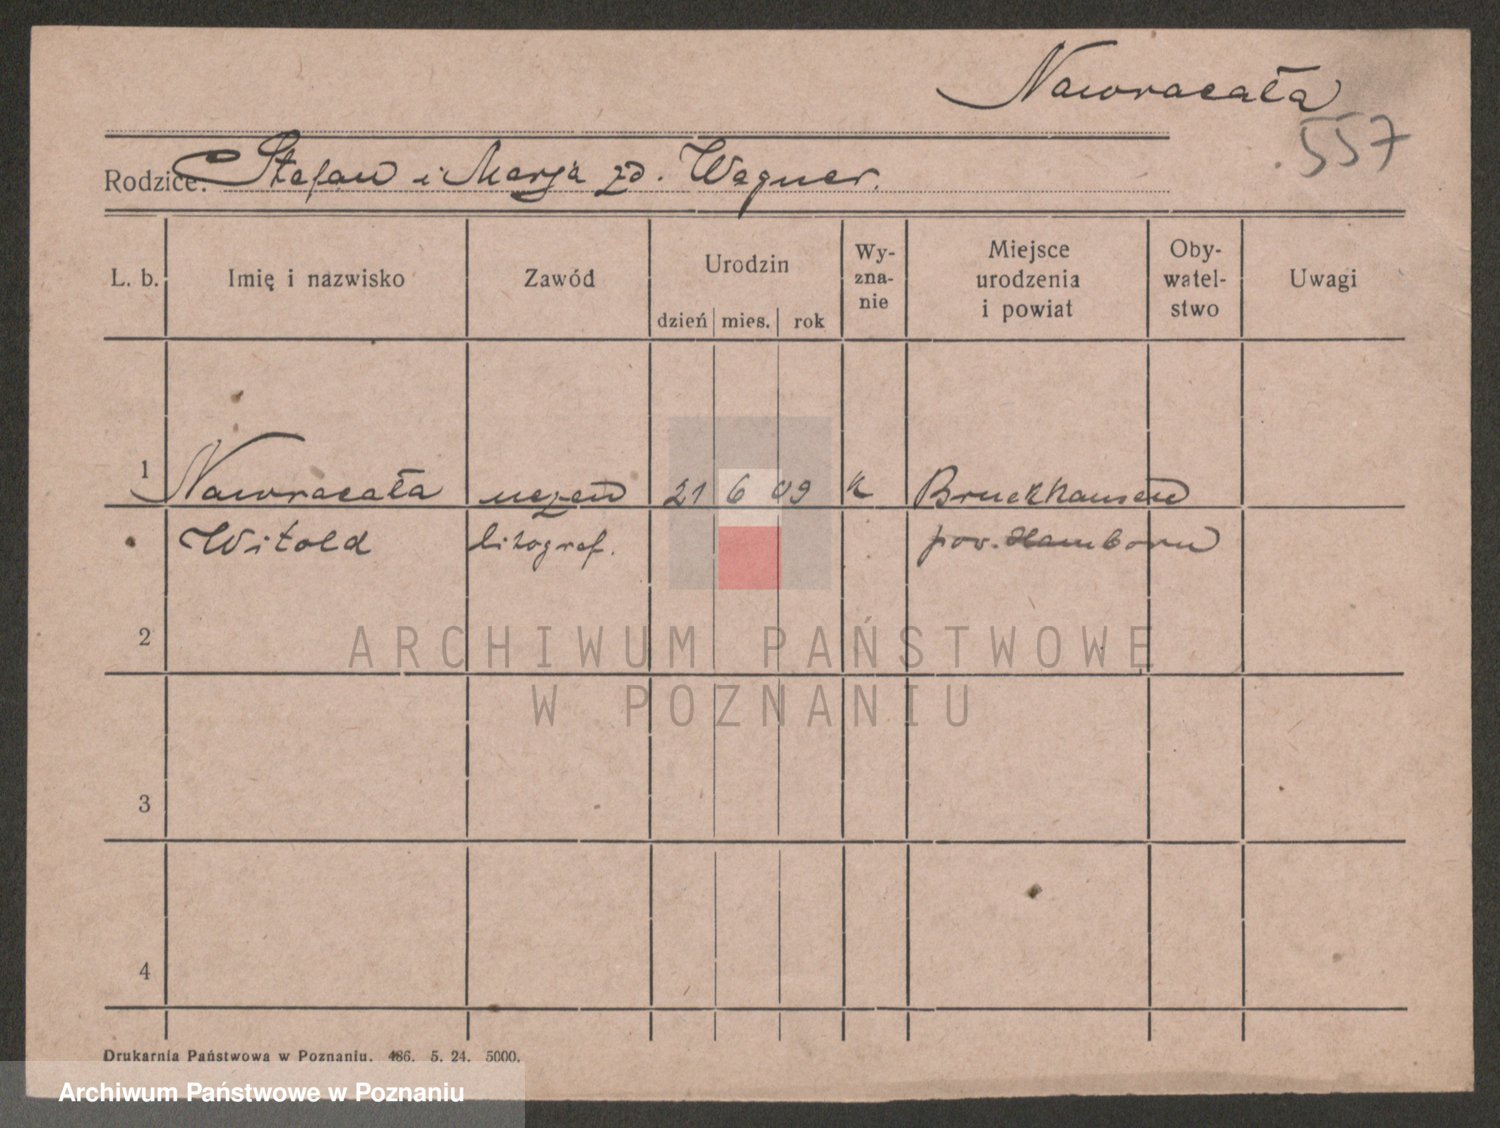 Nawracała
557
Rodzice: Stefan i Marja zd. Wagner.
L. b. Imię i nazwisko Zawód Urodzin Wy- Miejsce Oby- Uwagi
zna- urodzenia watel-
nie i powiat stwo
dzień mies. rok
1 Nawracała uczeń 21 6 09 k Bruckhausen
Witold litograf. pow. Hamborn
2
ARCHIWUM PAŃSTWOWE
W POZNANIU
3
4
Drukarnia Państwowa w Poznaniu. 486. 5. 24. 5000.
Archiwum Państwowe w Poznaniu